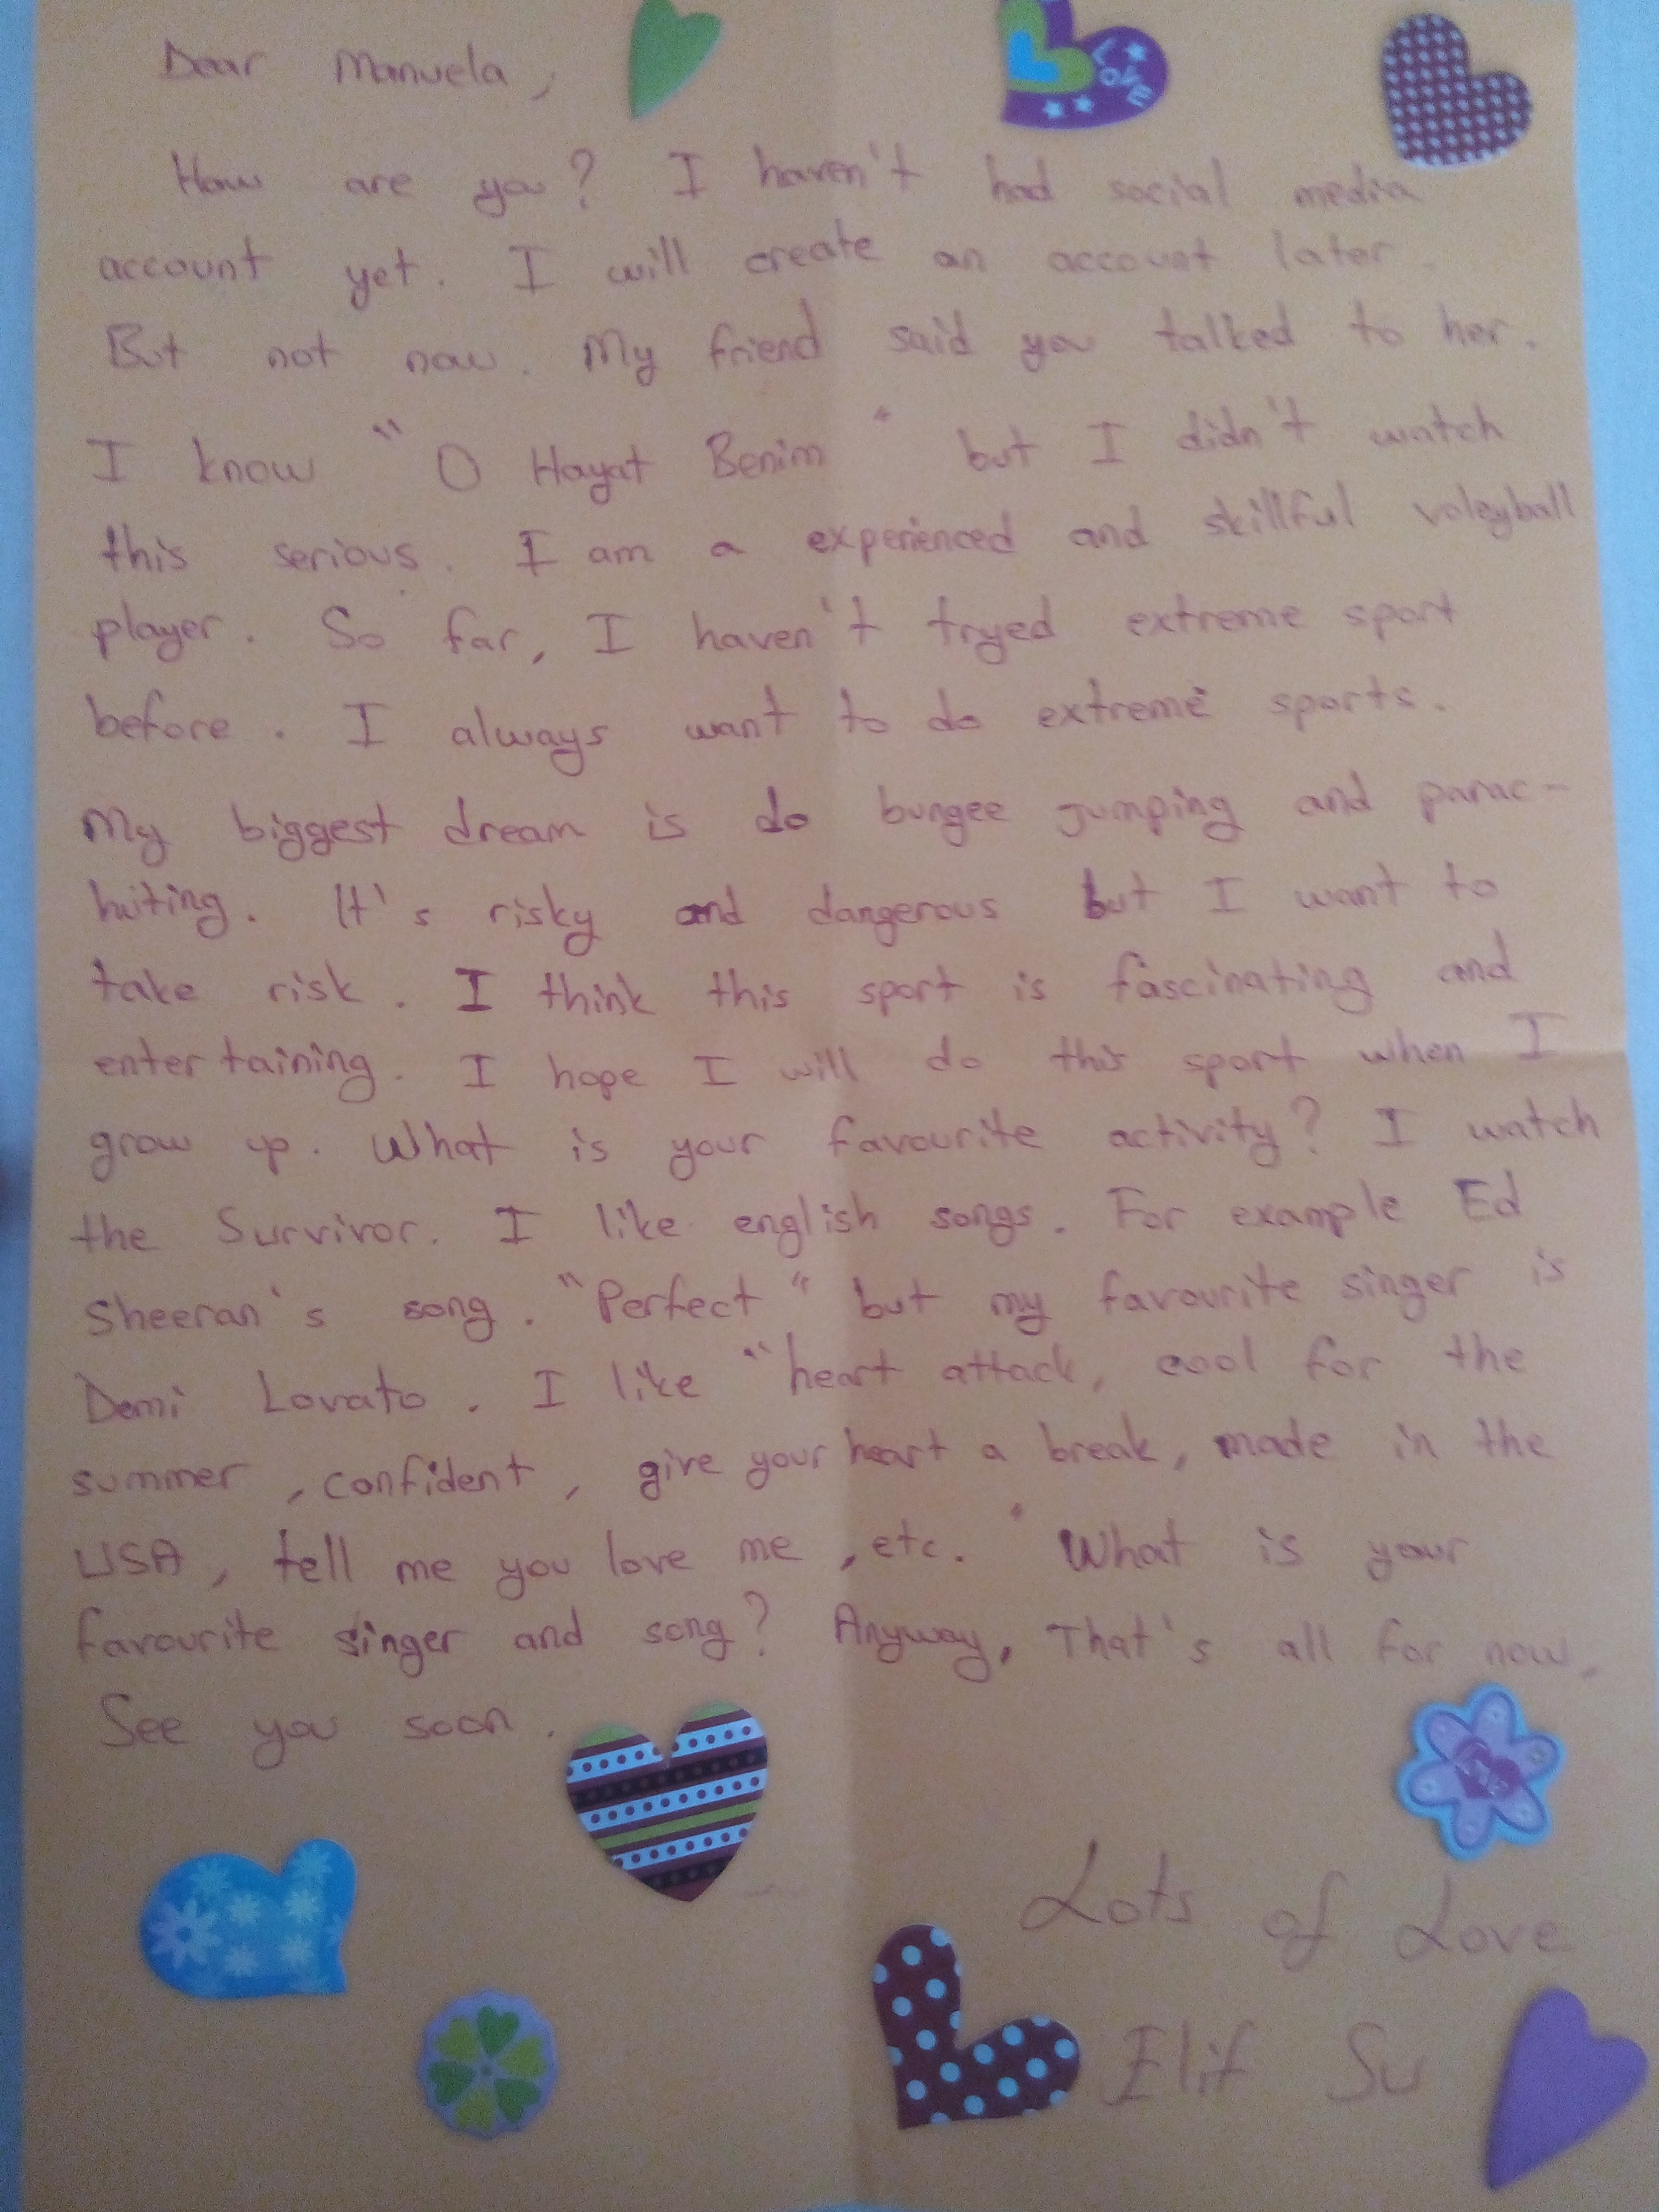 Dear Manuela,
LOVE
How are you? I haven't had social media
account yet. I will create an account later.
But not now. My friend said you talked to her.
I know "O Hayat Benim" but I didn't watch
this serious. I am a experienced and skillful voleyball
player. So far, I haven't tryed extreme sport
before. I always want to do extreme sports.
My biggest dream is do bungee jumping and parac-
huting. It's risky and dangerous but I want to
take risk. I think this sport is fascinating and
entertaining. I hope I will do this sport when I
grow up. What is your favourite activity? I watch
the Survivor. I like english songs. For example Ed
Sheeran's song. "Perfect" but my favourite singer is
Demi Lovato. I like "heart attack, cool for the
summer, confident, give your heart a break, made in the
USA, tell me you love me, etc." What is your
favourite singer and song? Anyway, That's all for now.
See you soon.
Lots of Love
Elif Su